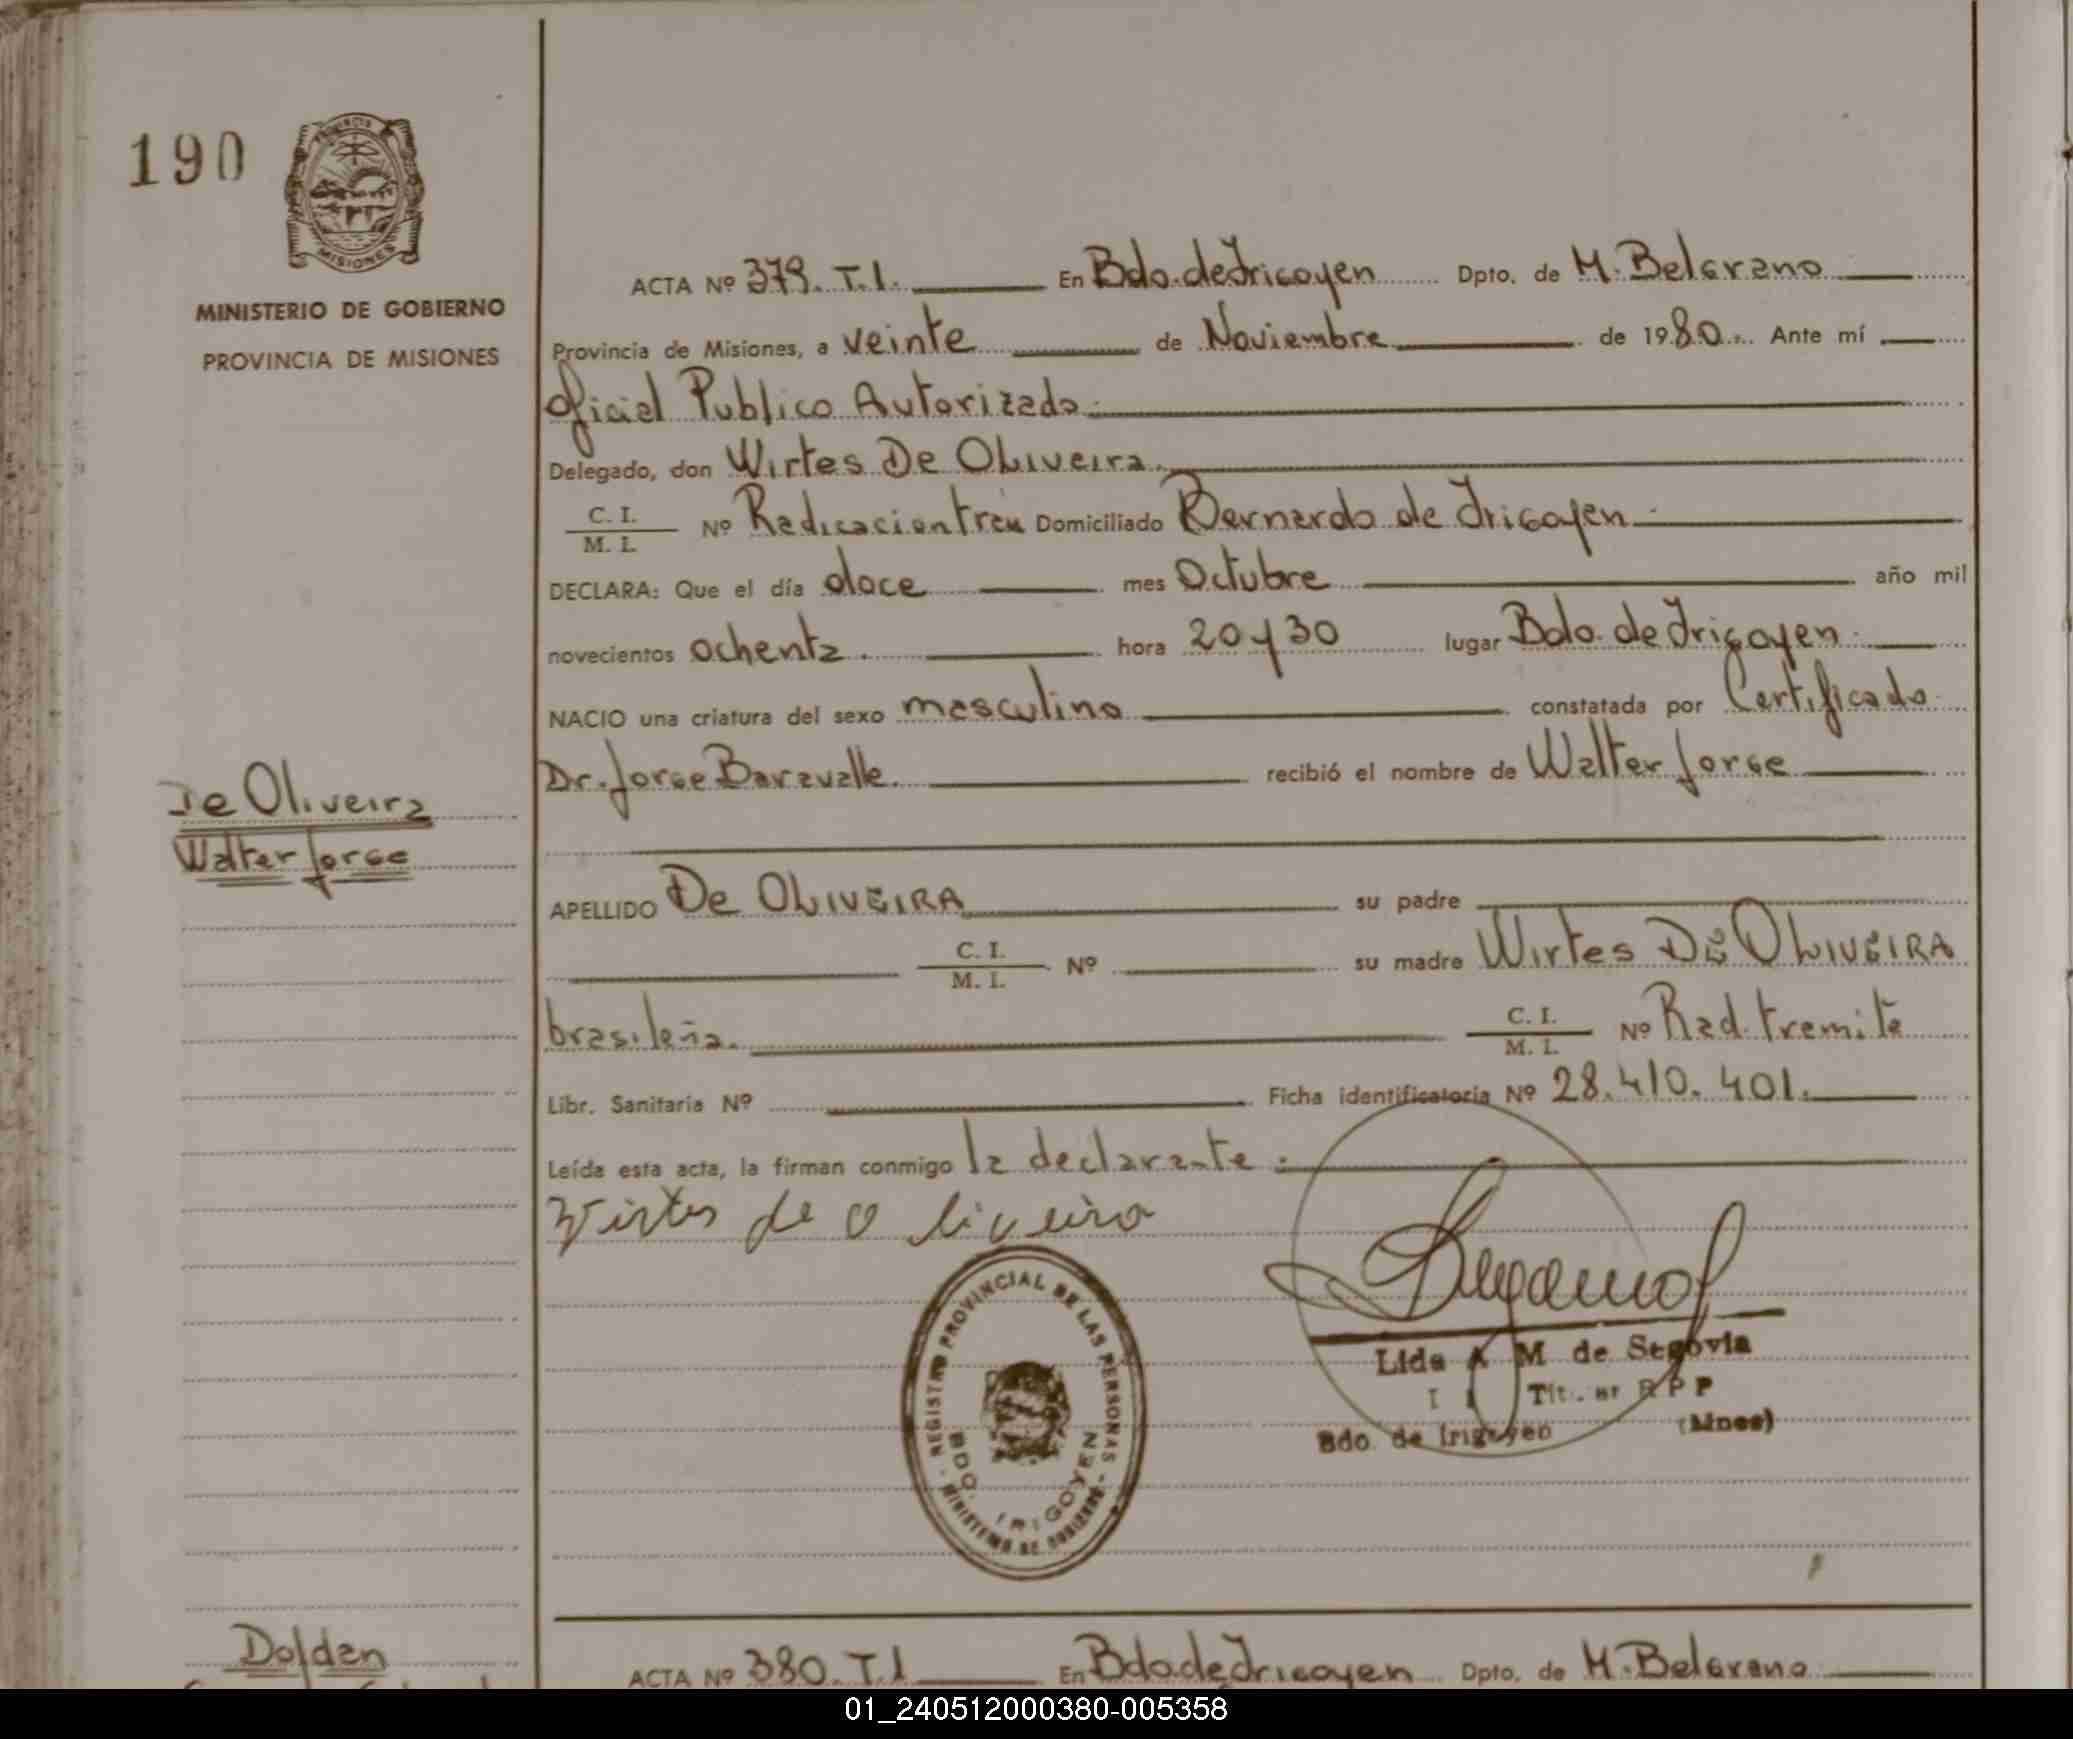 190
PROVINCIA
MISIONES
MINISTERIO DE GOBIERNO
PROVINCIA DE MISIONES
ACTA Nº 379. T.I. En Bdo. de Irigoyen Dpto. de M. Belgrano
Provincia de Misiones, a veinte de Noviembre de 1980. Ante mí
Oficial Publico Autorizado.
Delegado, don Wirtes De Oliveira.
C. I. / M. I. Nº Radicacion tram Domiciliado Bernardo de Irigoyen
DECLARA: Que el día doce mes Octubre año mil
novecientos ochenta. hora 20 y 30 lugar Bdo. de Irigoyen.
NACIO una criatura del sexo masculino constatada por Certificado
Dr. Jorge Baravalle. recibió el nombre de Walter Jorge
De Oliveira
Walter Jorge
APELLIDO De OLIVEIRA su padre
C. I. / M. I. Nº su madre Wirtes DE OLIVEIRA
brasileña. C. I. / M. I. Nº Rad. tramite
Libr. Sanitaria Nº Ficha identificatoria Nº 28.410.401.
Leída esta acta, la firman conmigo la declarante:
Wirtes de Oliveira
REGISTRO PROVINCIAL DE LAS PERSONAS
BDO. IRIGOYEN
MINISTERIO DE GOBIERNO
Lida A M de Segovia
Tit. RPP
Bdo. de Irigoyen (Mnes)
Doldan
ACTA Nº 380. T.I En Bdo. de Irigoyen Dpto. de M. Belgrano
01_240512000380-005358